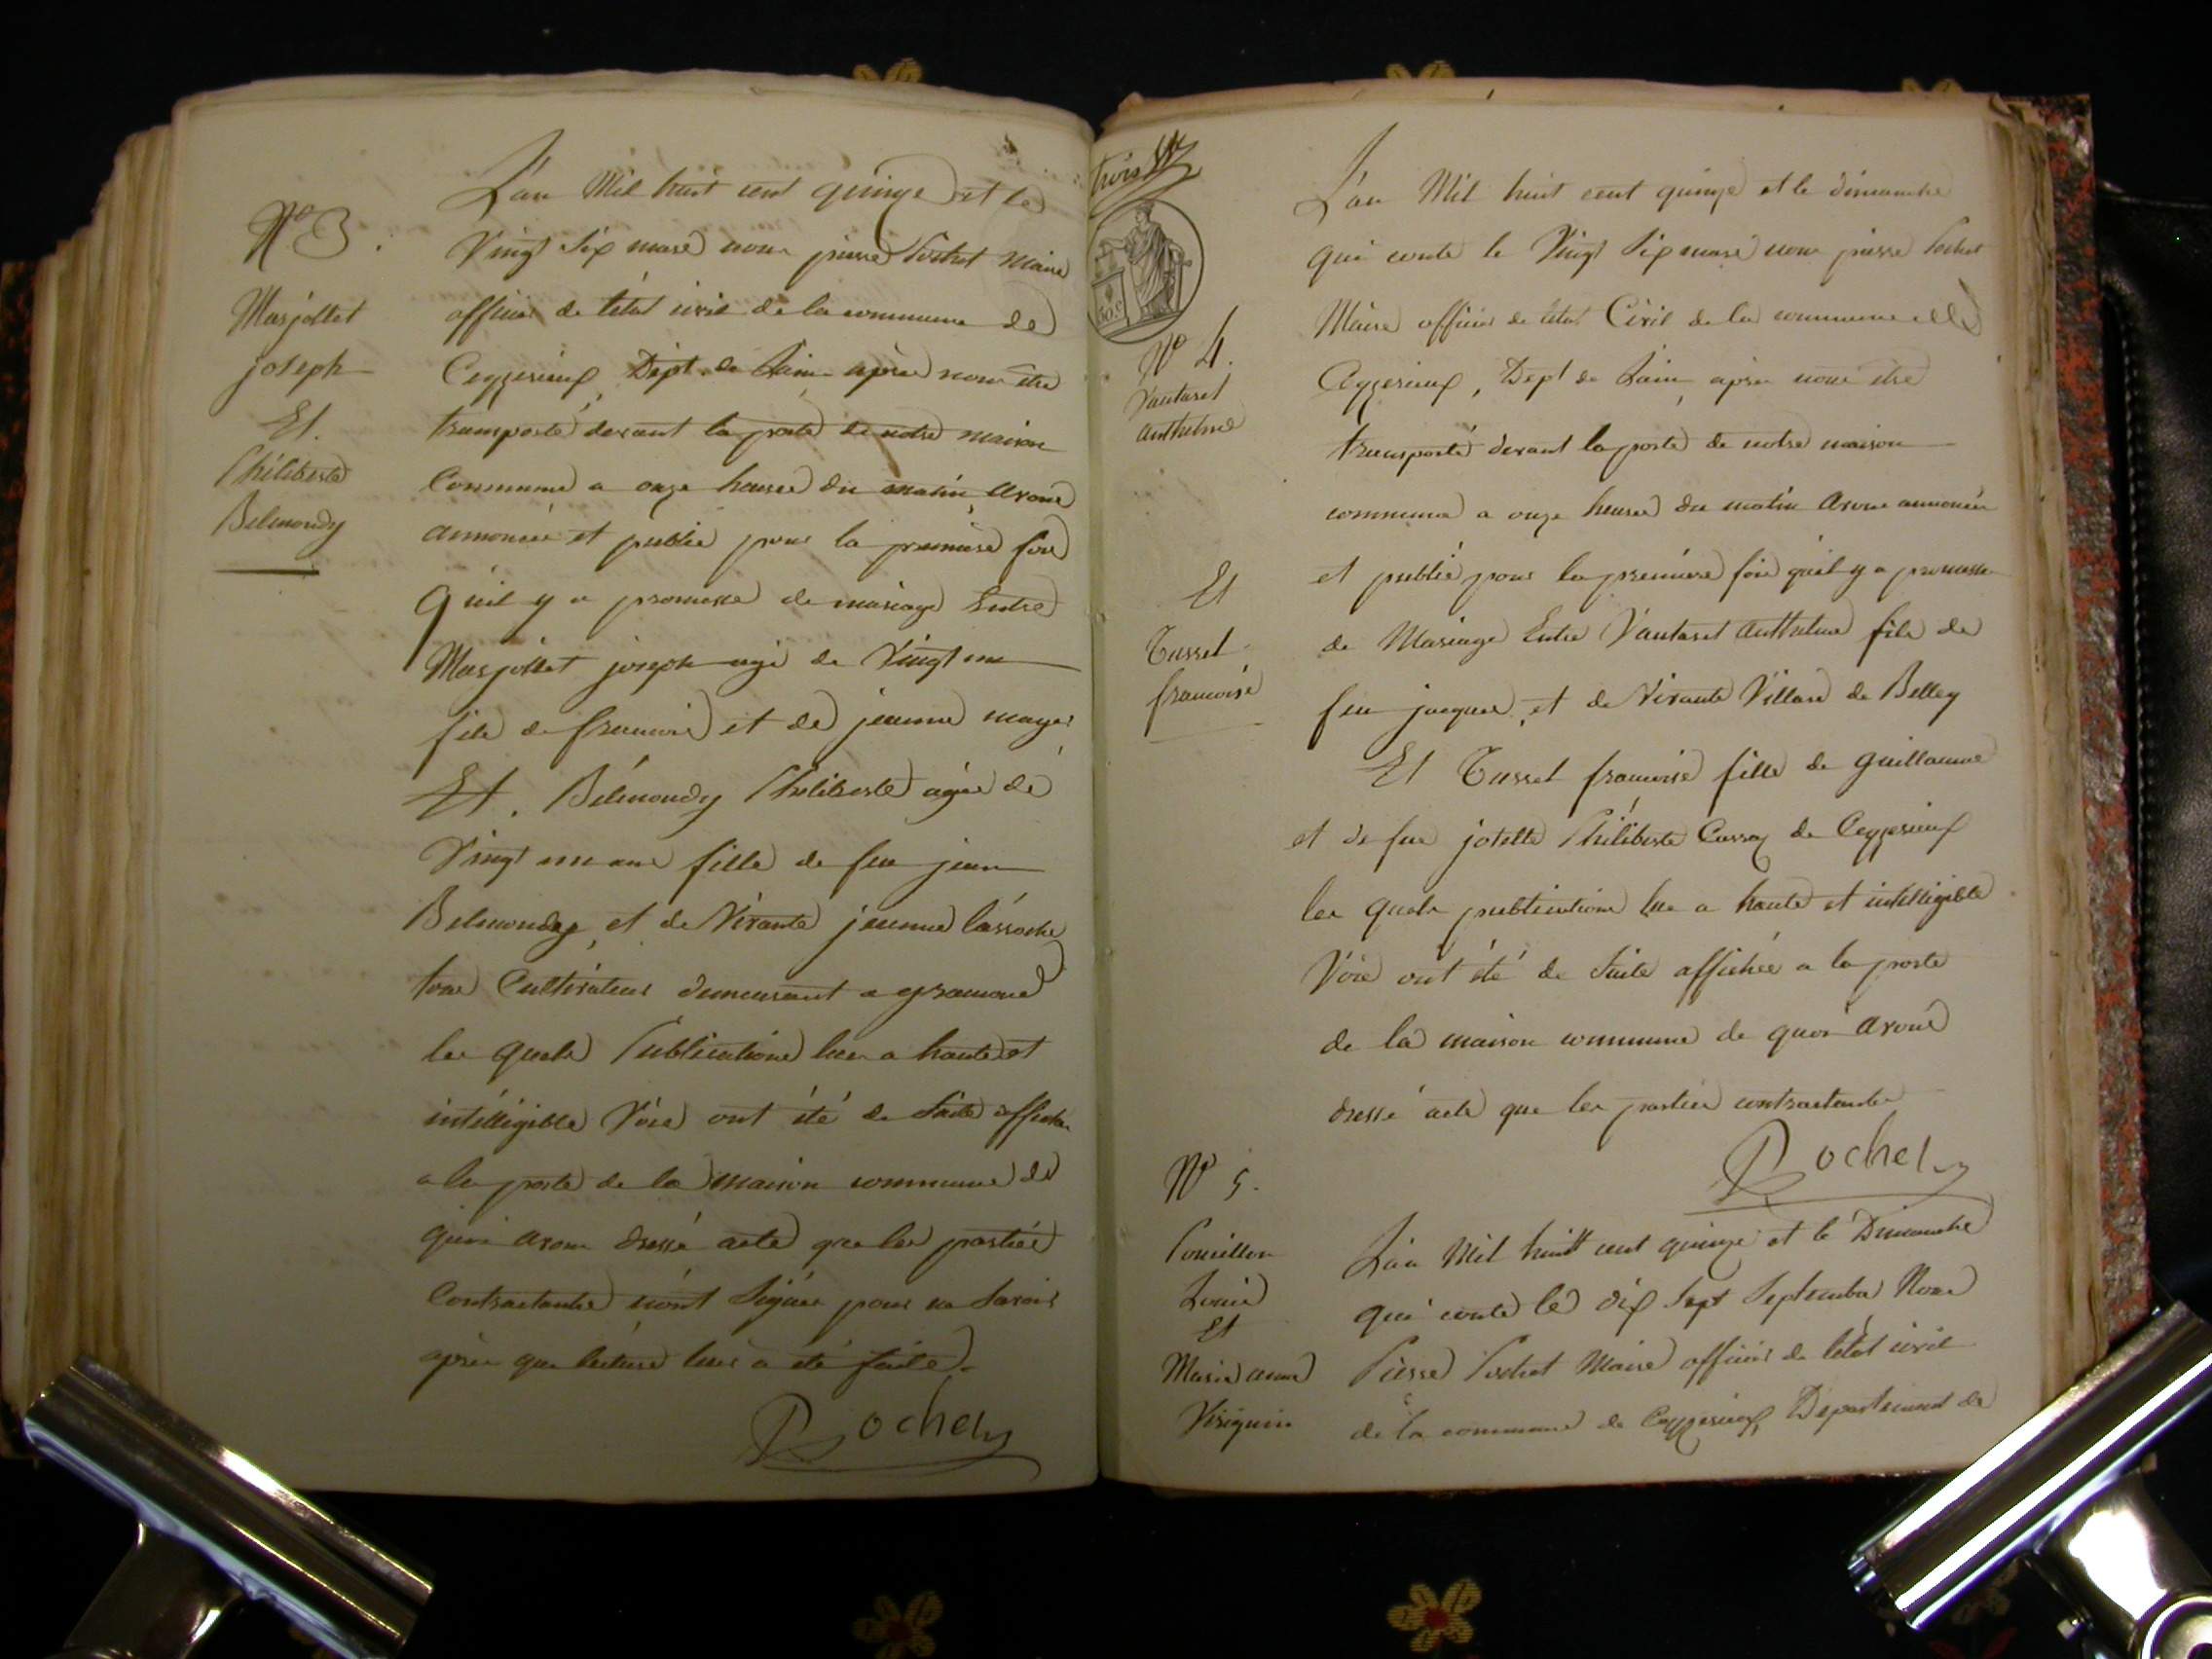 N° 3.
Marjollet
joseph
Et.
Philiberte
Belmondy
L'an Mil huit cent quinze et le
Vingt Six mars nous pierre Pochet Maire
officier de l'état civil de la commune de
Ceyzerieux, Dépt. de Lain après nous être
transporté devant la porte de notre maison
Commune a onze heures du matin avons
annoncé et publié pour la première fois
Qu'il y a promesse de mariage Entre
Marjollet joseph agé de Vingt un
fils de francois et de jeanne
Et. Bélmondy Philiberte agée de
Vingt un ans fille de feu jean
Belmondy, et de Vivante jeanne
tous Cultivateurs demeurant a
les quels Publications lues a haute et
intélligible Voix ont été de Suite affichée
a la porte de la maison commune de
quoi avons dressé acte que les parties
Contractantes n'ont Signés pour ne Savoir
après que lecture leur a été faite.
Pochet
trois
50 c
N° 4.
Vautaret
anthelme
Et
Tusset
francoise
L'an Mil huit cent quinze et le dimanche
qui conte le Vingt Six mars nous pierre Pochet
Maire officier de létat Civil de la commune de
Ceyzerieux, Dept de Lain, après nous être
transporté devant la porte de notre maison
commune a onze heures du matin avons annoncée
et publié pour la première fois qu'il y a promesse
de Mariage Entre Vautaret anthelme fils de
feu jacques, et de Vivante Villard de Belley
Et Tusset francoise fille de guillaume
et de feu josette Philiberte de Ceyzerieux
les quels publications lue a haute et intélligible
Voix ont été de Suite affichée a la porte
de la maison commune de quoi avons
dressé acte que les parties contractantes
Pochet
N° 5.
Pouillon
Louis
Et
Marie anne
Viviguin
L'an Mil huitt cent quinze et le Dimanche
qui conte le dix Sept Septembre Nous
Pierre Pochet Maire officier de létat civil
de la commune de Ceyzerieux, Departement de